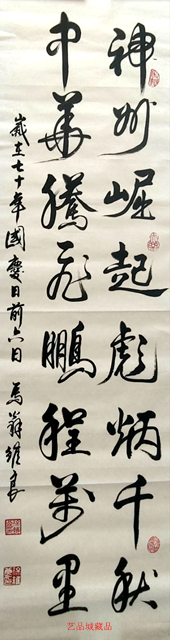 神州崛起彪炳千秋
中華騰飛鵬程萬里
歲在七十年國慶日前六日 馬翁維良
艺品城藏品